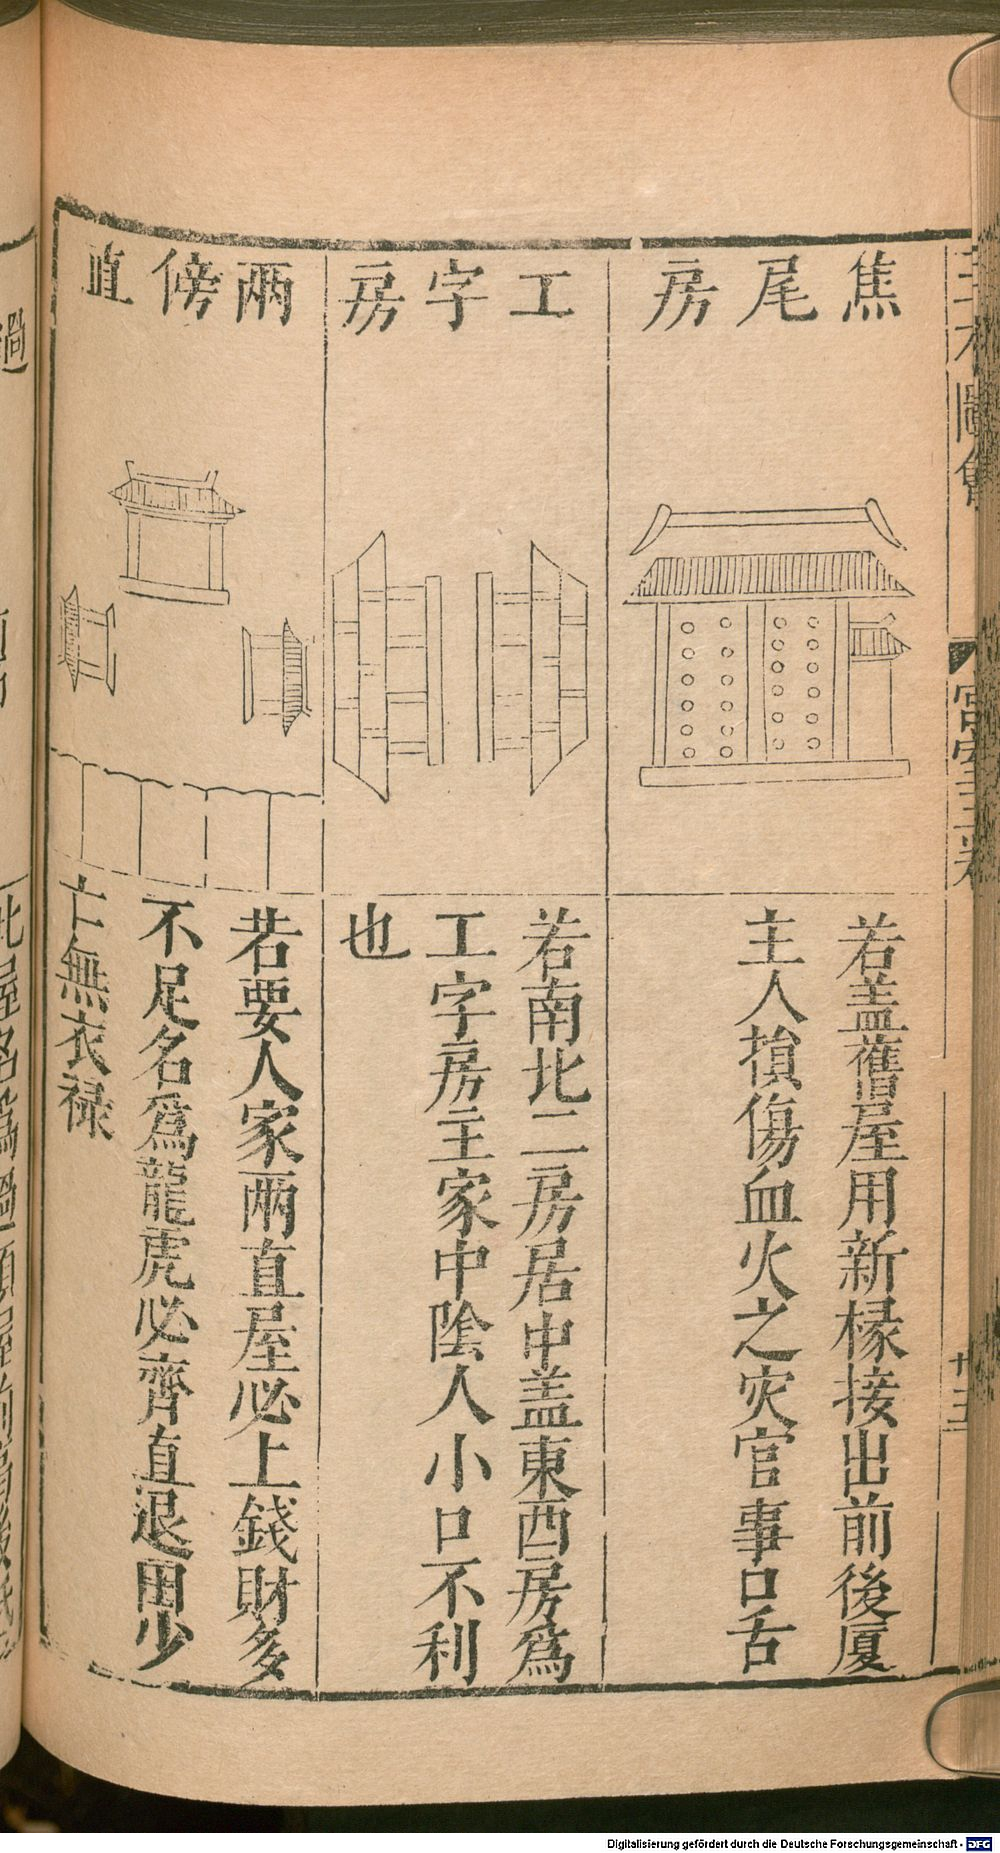 三才圖會
宮室三卷
廿三
焦尾房
若盖舊屋用新椽接出前後厦
主人損傷血火之灾官事口舌
工字房
若南北二房居中盖東西房爲
工字房主家中陰人小口不利
也
兩傍直
若要人家兩直屋必上錢財多
不足名爲龍虎必齊直退田少
亡無衣禄
Digitalisierung gefördert durch die Deutsche Forschungsgemeinschaft - DFG